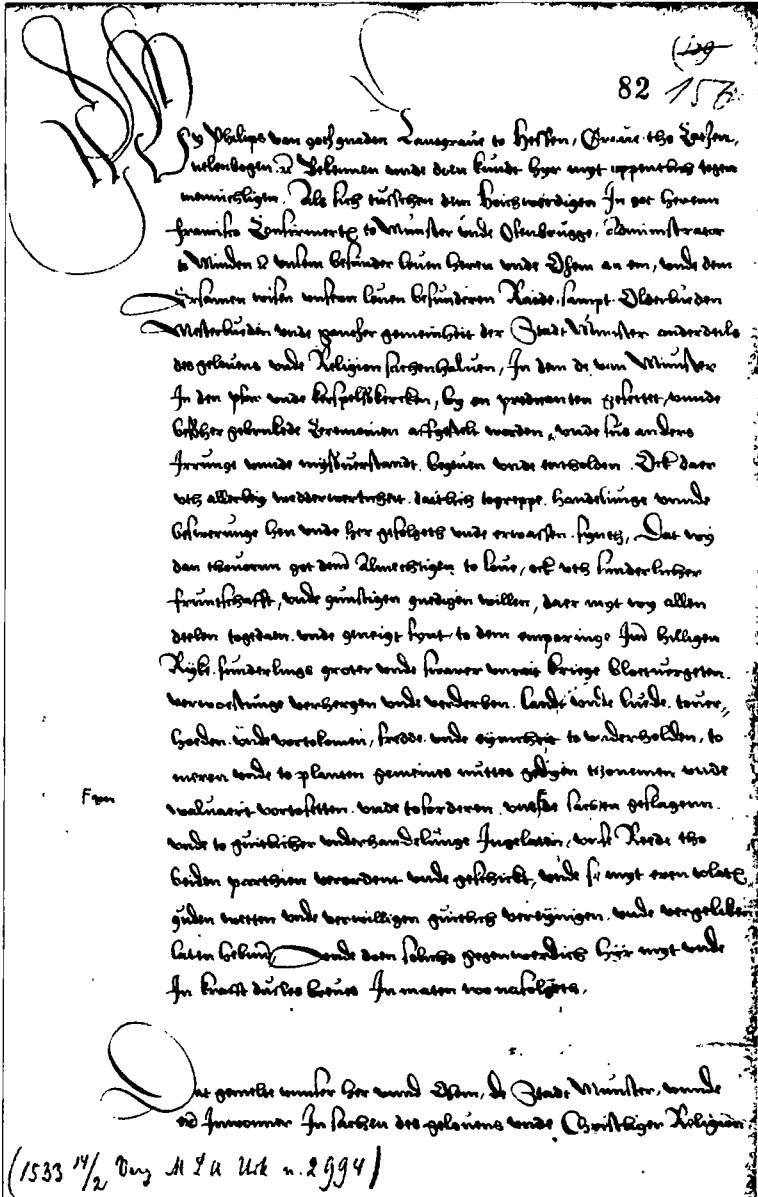 82
Wy Philips van gots gnaden Lantgraue to Hessen, Graue tho Catzen,
nelenbogen ꝛc Bekennen vnde doen kundt hyr myt oppentlich tegen
mennichligen. Als sich tusschen dem Hoichwerdigen In got heren
Francisco Confirmerten to Munster vnde Osenbrugge, Administrator
to Minden ꝛc vnsem besunder leuen heren vnde Ohem an ein, vnde dem
Ersamen wisen vnsern leuen besunderen Raide, sampt Olderluden
Mesterluden vnde gantzer gemeinheit der Stadt Munster anderdeils
des gelouens vnde Religion sachen haluen, In dem de van Munster
In den phar vnde kerspelskercken, by en predicanten gesettet, vnnde
bessher gebrukede Ceremonien affgestelt worden, vnde sus anders
Irrunge vnnde mysuerstandt begeuen vnde entholden. Ock daer
vth allerley wedderwerticheit daitlich togreppe handelunge vnnde
beswerunge hen vnde her gefolgeth vnde erwassen synth, Dat wy
dan theuorun got dem Almechtigen to loue, ock vth sunderlicher
fruntschafft, vnde gunstigen gnedigen willen, daer myt wy allen
deelen togedaen vnde geneigt synt, to dem emporinge Im hilligen
Ryke sunderlings groter vnde swarer vnrait kriege bloetuergeten
verwoestunge verhergen vnde verderben landt vnde luide touer,,
hoeden vnde vortokomen, fredde vnde eynicheit to vnderholden, to
meren vnde to planten gemeines nuttes gedyen tzonemen vnde
waluaert vortosetten vnde tofordern vns de sachen geslagenn
vnde to guitlicher vnderhandelunge Ingelaten, vnse Reede tho
beiden parthien verordent vnde geschickt, vnde se myt eren
guden wetten vnde verwilligen guitlich vereynigen vnde vergeliken
laten hebnn, vnde doen solichs gegenwerdich hyr myt vnde
In krafft dusses breues In maten wo nafolgeth.
Dat gemelte vnnser her vnnd Ohm, de Stadt Munster, vnnde
Inwonner In sachen des gelouens vnde Christliger Religion
(1533 14/2 Verz M L A Urk n. 2994)